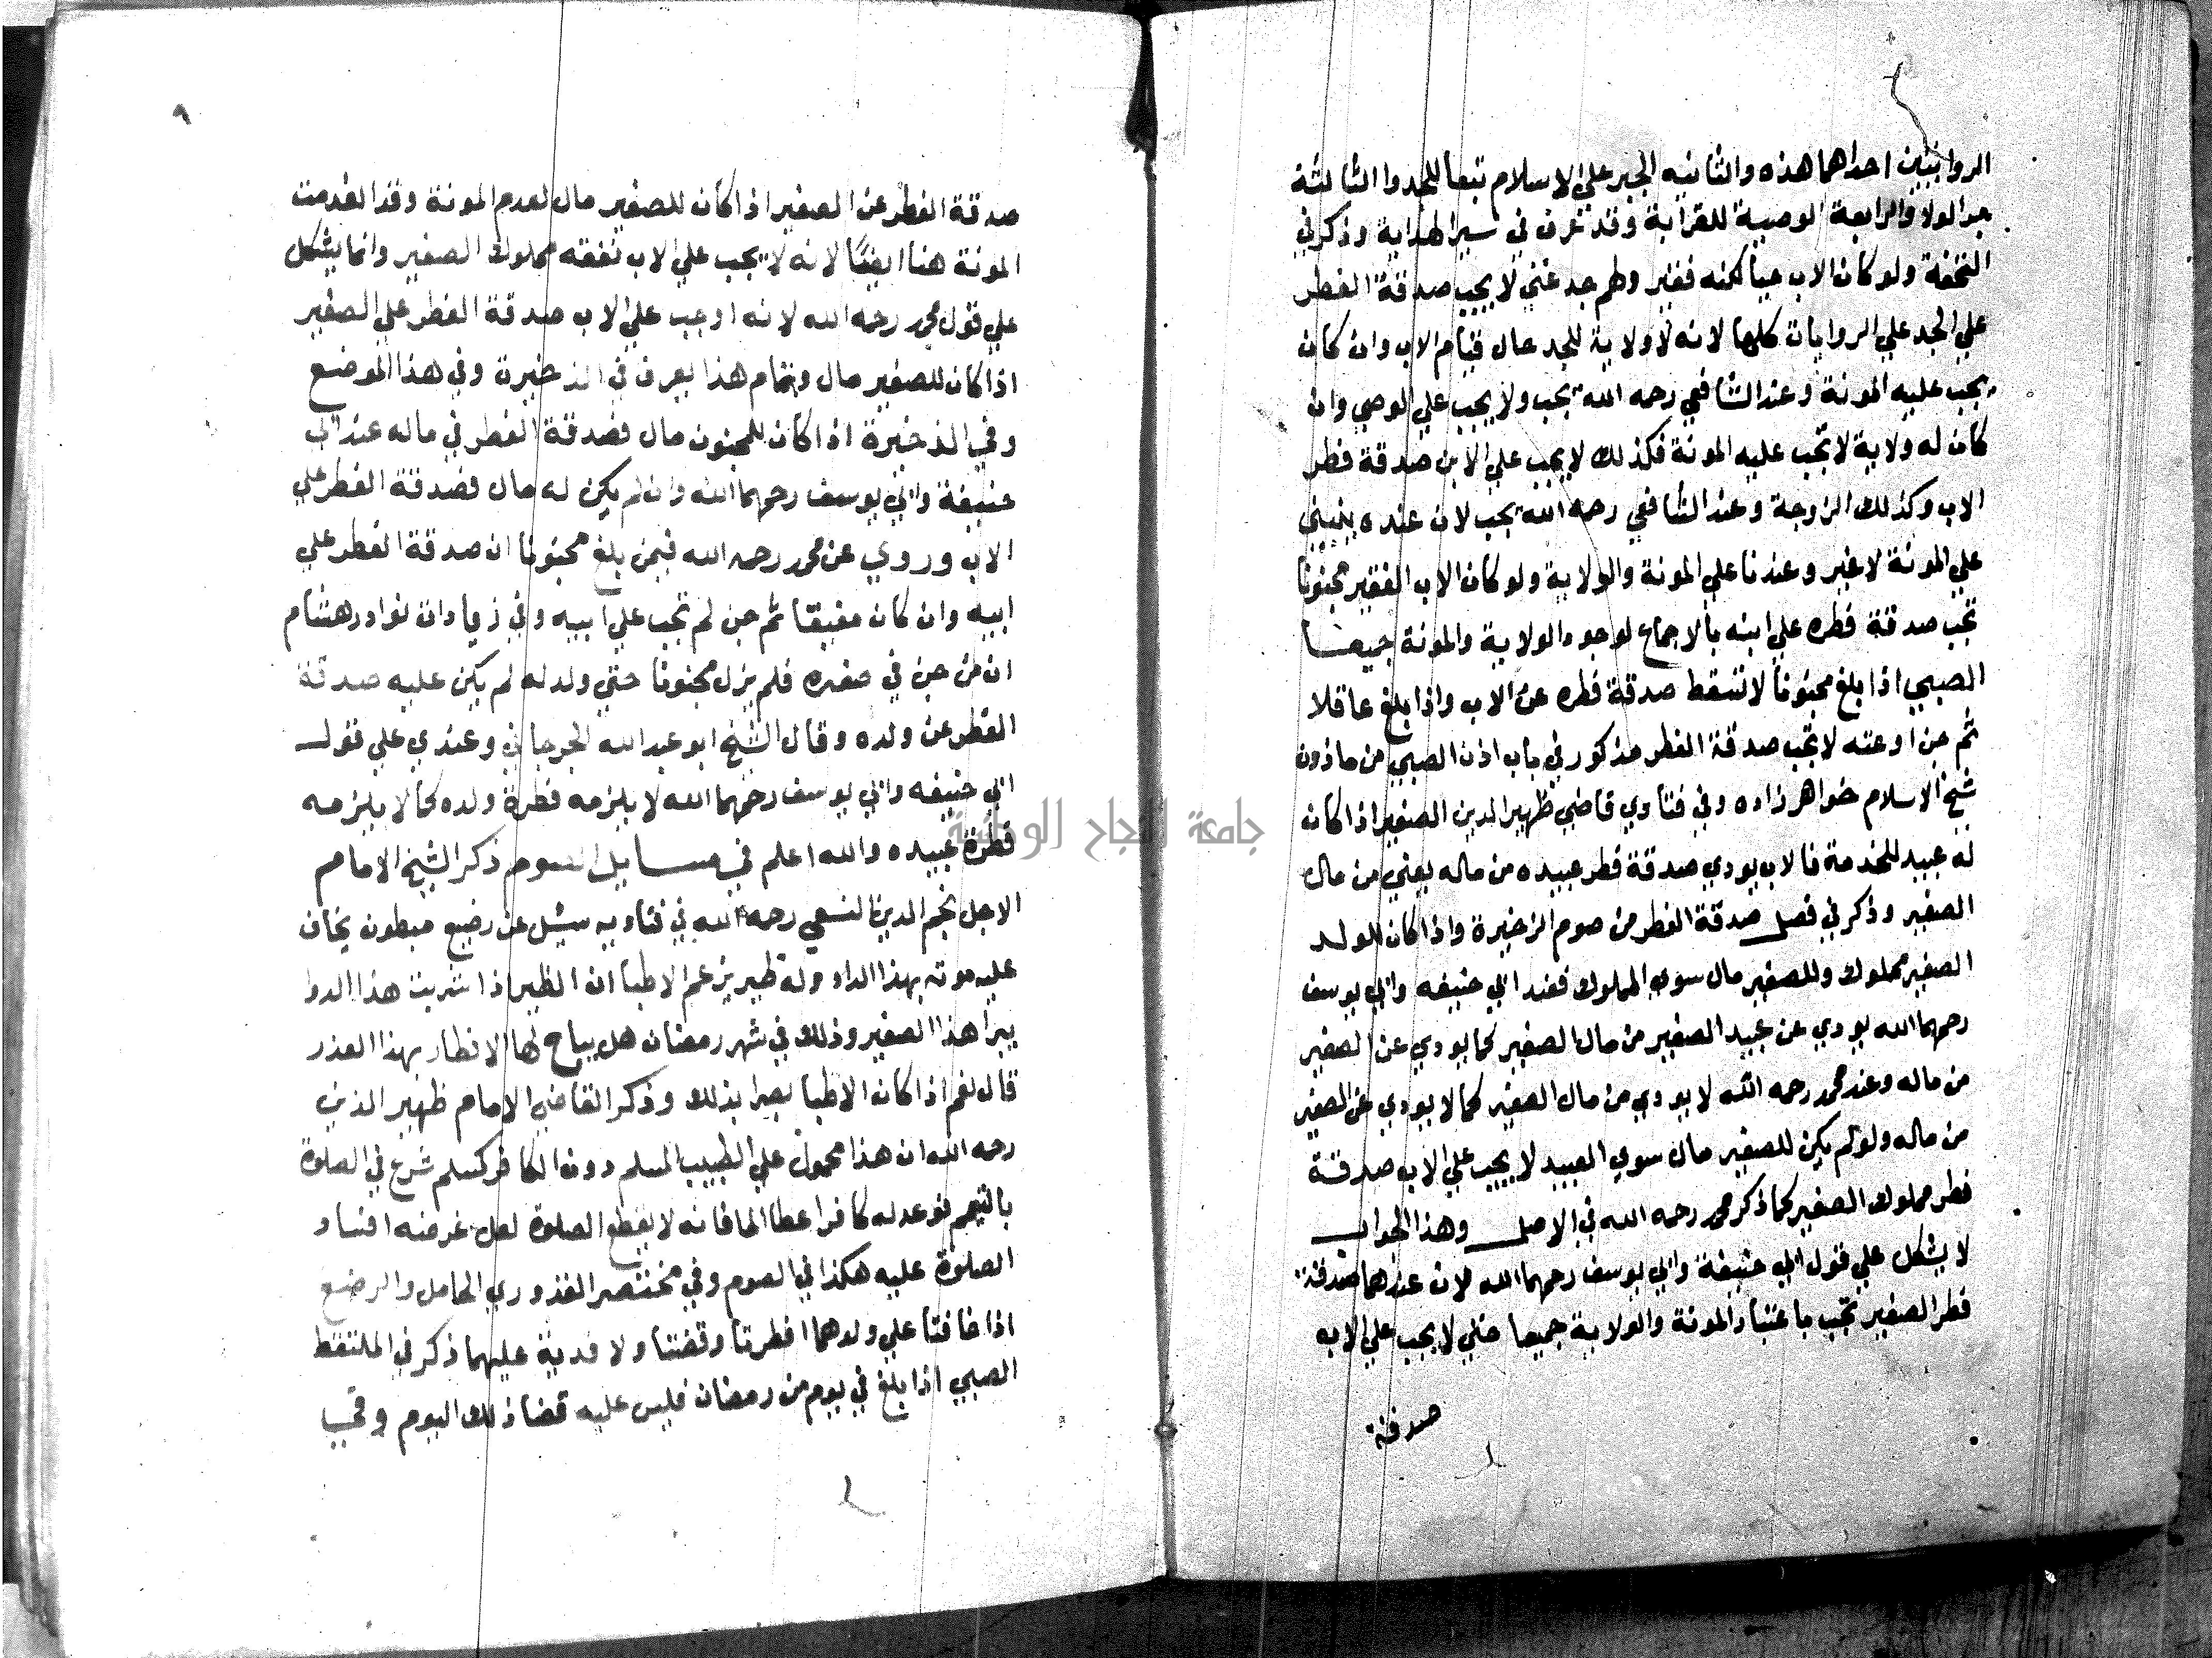 الروايتين احداهما هذه والثانيه الجبر علي الاسلام تبعا للجد والثالثة
جر الولا والرابعة الوصية للقرابة وقد عرف في سير الهداية وذكر في
التحفة ولو كان الاب حيا لكنه فقير ولهم جد غني لا يجب صدقة الفطر
علي الجد علي الروايات كلها لانه لا ولاية للجد حال قيام الاب وان كان
يجب عليه المونة وعند الشافعي رحمه الله يجب ولا يجب علي الوصي وان
كان له ولاية لا تجب عليه المونة فكذلك لا يجب علي الابن صدقة فطر
الاب وكذلك الزوجة وعند الشافعي رحمه الله يجب لان عنده يبتني
علي المونة لا غير وعندنا علي المونة والولاية ولو كان الاب الفقير مجنونا
تجب صدقة فطره علي ابنه بالاجماع لوجود الولاية والمونة جميعا
الصبي اذا بلغ مجنونا لا تسقط صدقة فطره عن الاب واذا بلغ عاقلا
ثم جن او عته لا تجب صدقة الفطر مذكور في باب اذن الصبي من ماذون
شيخ الاسلام خواهر زاده وفي فتاوي قاضي ظهير الدين الصغير اذا كان
له عبيد للخدمة فالاب يودي صدقة فطر عبيده من ماله يعني من مال
الصغير وذكر في فصل صدقة الفطر من صوم الزخيرة واذا كان للولد
الصغير مملوك وللصغير مال سوي المملوك فعند ابي حنيفه وابي يوسف
رحمهما الله يودي عن عبيد الصغير من مال الصغير كما يودي عن الصغير
من ماله وعند محمد رحمه الله لا يودي من مال الصغير كما لا يودي عن الصغير
من ماله ولو لم يكن للصغير مال سوي العبيد لا يجب علي الاب صدقة
فطر مملوك الصغير كما ذكر محمد رحمه الله في الاصل وهذا الجواب
لا يشكل علي قول ابي حنيفة وابي يوسف رحمهما الله لان عندهما صدقة
فطر الصغير تجب باعتبار المونة والولاية جميعا حتي لا يجب علي الاب
صدقة
٩
صدقة الفطر عن الصغير اذا كان للصغير مال لعدم المونة وقد انعدمت
المونة هنا ايضا لانه لا يجب علي الاب نفقه مملوك الصغير وانما يشكل
علي قول محمد رحمه الله لانه اوجب علي الاب صدقة الفطر علي الصغير
اذا كان للصغير مال وتمام هذا يعرف في الذخيرة وفي هذا الموضع
وفي الذخيرة اذا كان للمجنون مال فصدقة الفطر في ماله عند ابي
حنيفة وابي يوسف رحمهما الله وان لم يكن له مال فصدقة الفطر علي
الاب وروي عن محمد رحمه الله فيمن بلغ مجنونا ان صدقة الفطر علي
ابيه وان كان مفيقا ثم جن لم تجب علي ابيه وفي زيادات نوادر هشام
ان من جن في صغره فلم يزل مجنونا حتي ولد له لم يكن عليه صدقة
الفطر عن ولده وقال الشيخ ابو عبد الله الجرجاني وعندي علي قول
ابي حنيفه وابي يوسف رحمهما الله لا يلزمه فطرة ولده كما لا يلزمه
فطرة عبيده والله اعلم في مسايل الصوم ذكر الشيخ الامام
الاجل نجم الدين النسفي رحمه الله في فتاويه سيئل عن رضيع مبطون يخاف
عليه موته بهذا الداء وله ظير يزعم الاطبا ان الظير اذا شربت هذا الدوا
يبرا هذا الصغير وذلك في شهر رمضان هل يباح لها الافطار بهذا العذر
قال نعم اذا كان الاطبا بصرا بذلك وذكر القاضي الامام ظهير الدين
رحمه الله ان هذا محمول علي الطبيب المسلم دون الكافر كمسلم شرع في الصلوة
بالتيمم فوعد له كافر اعطا الما فانه لا يقطع الصلوة لعل غرضه افساد
الصلوة عليه هكذا في الصوم وفي مختصر القدوري الحامل والرضيع
اذا خافتا علي ولدهما افطرتا وقضتا ولا فدية عليهما ذكر في الملتقط
الصبي اذا بلغ في يوم من رمضان فليس عليه قضا ذلك اليوم وفي
جامعة النجاح الوطنية